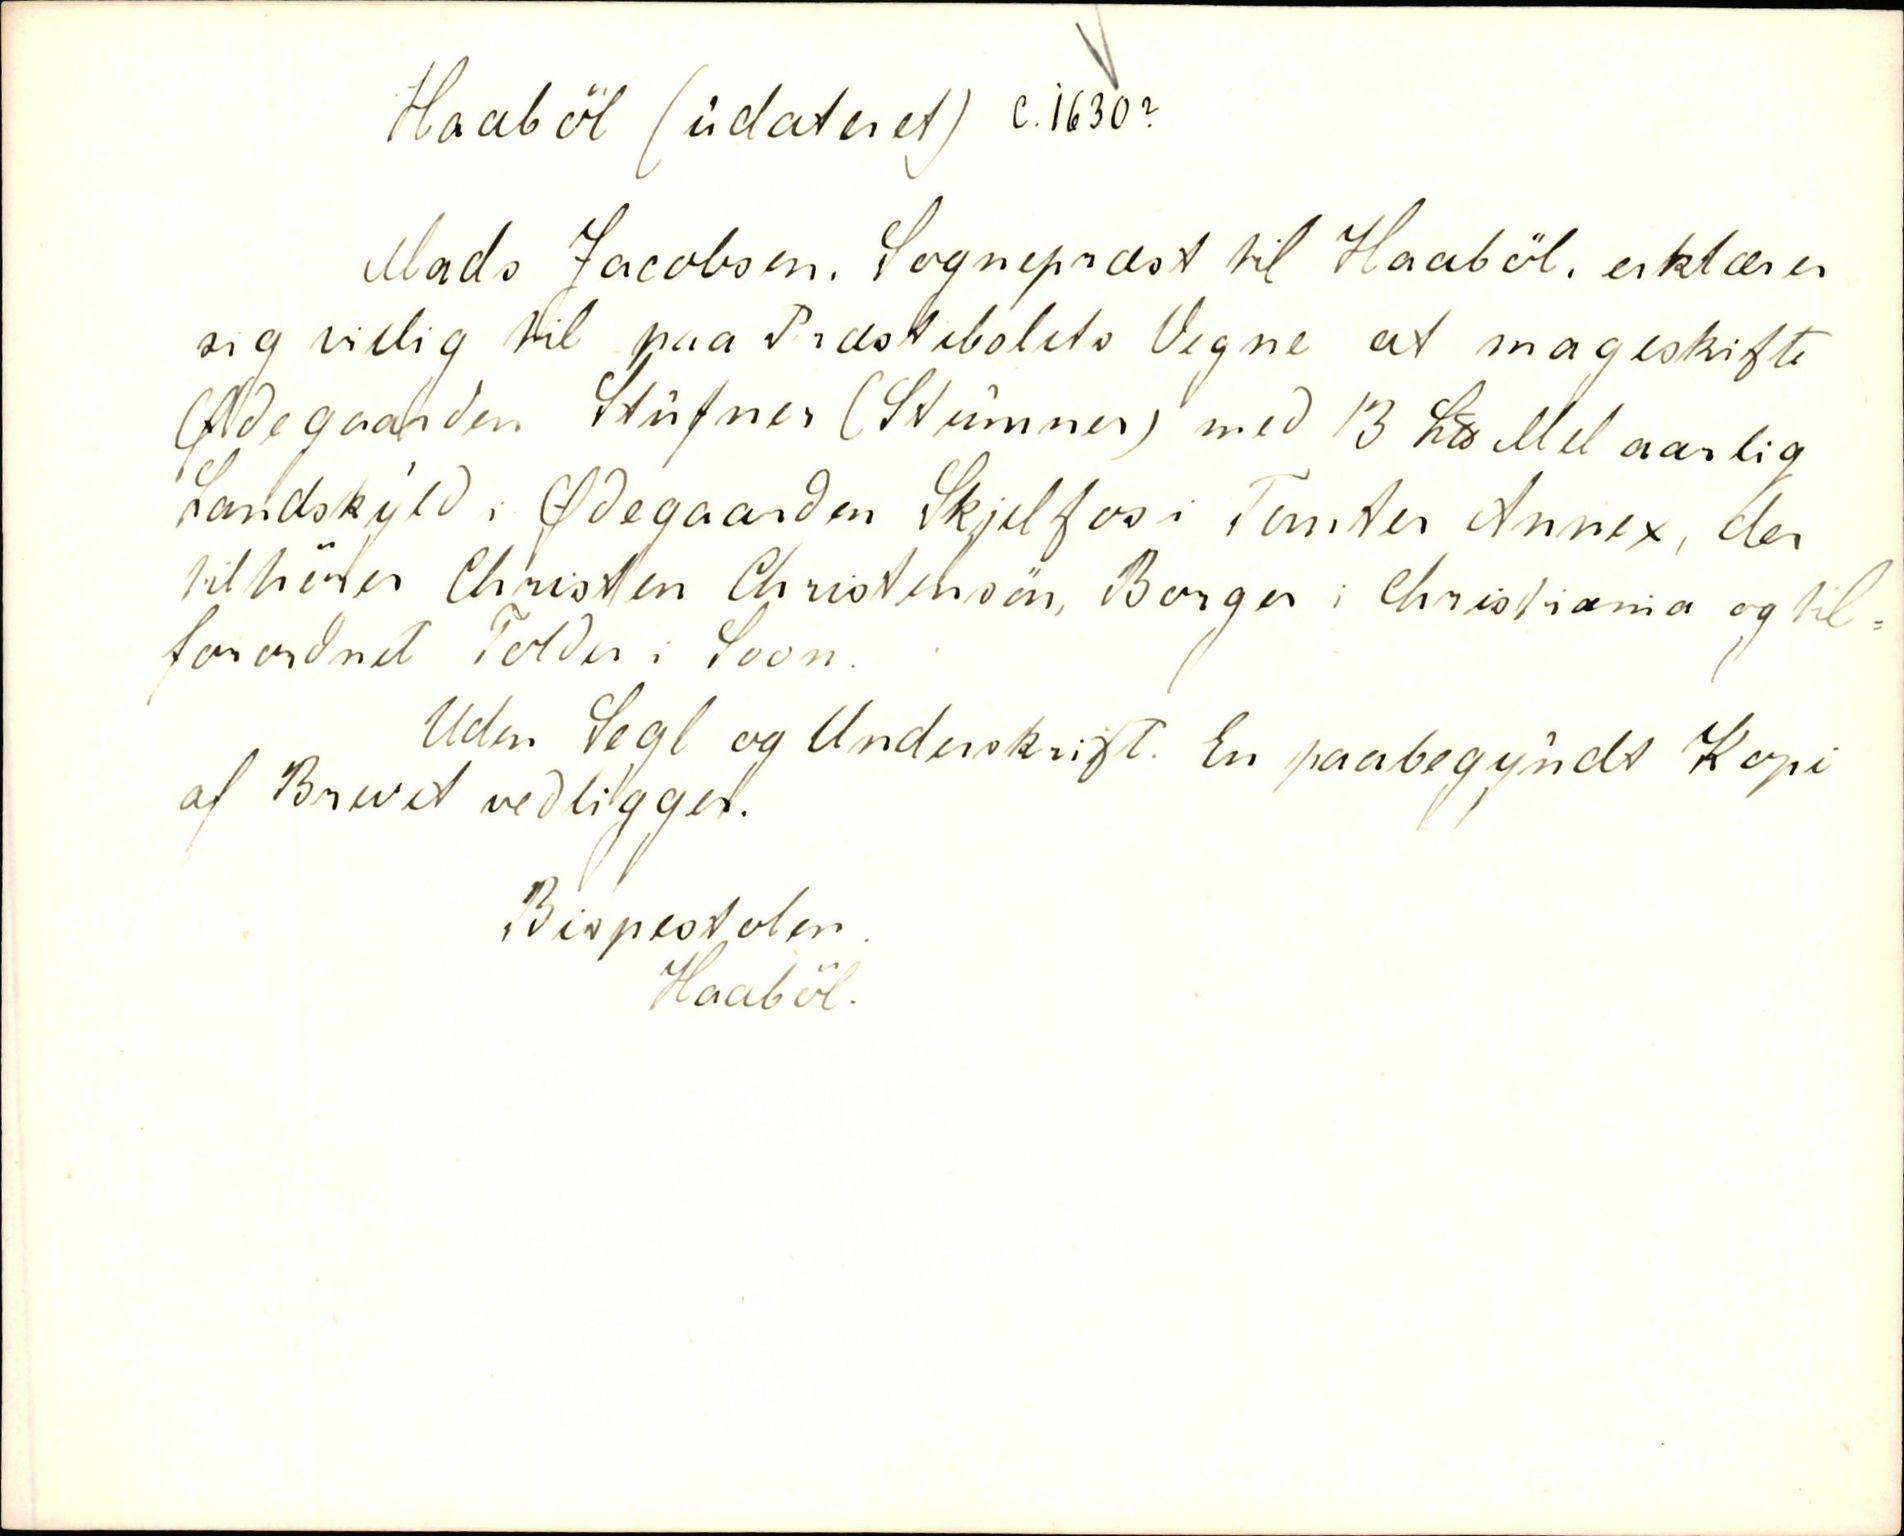 Haaböl (ŭdateret) c. 1630?
Mads Jacobsen, Sognepræst til Haaböl, erklærer
sig villig til paa Præstebolets Vegne at mageskifte
Ødegaarden Stŭfner (Stŭmner) med 13 L℔ Mel aarlig
Landskyld i Ødegaarden Skjelfos i Tomter Annex, der
tilhörer Christen Christensön, Borger i Christiania og til-
forordnet Tolder i Soon.
Uden Segl og Underskrift. En paabegyndt Kopi
af Brevet vedligger.
Bispestolen.
Haaböl.